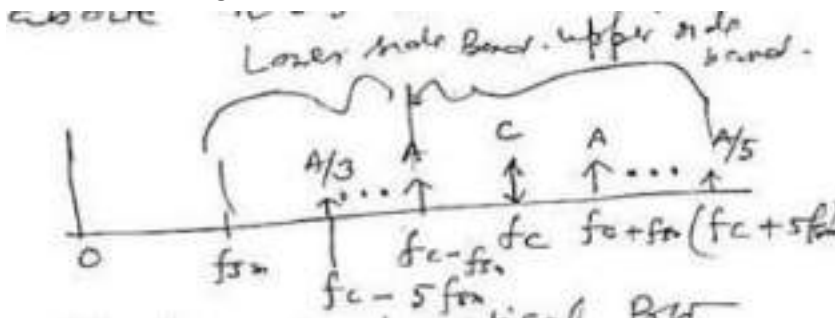 above
Lower side Band. upper side
band.
A/3 ... A C A ... A/5
0 fsm fc-fsm fc fc+fsm (fc+5fsm
fc-5fsm